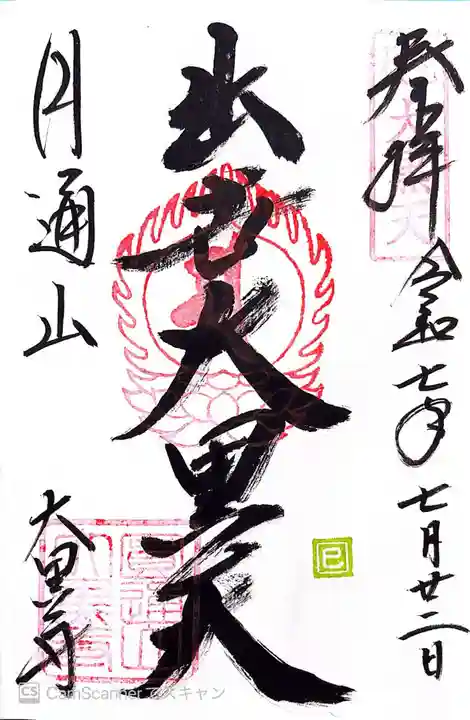 奉拝 令和七年七月廿二日
出世大黒天
円通山
大黒寺
巳
CS CamScanner でスキャン